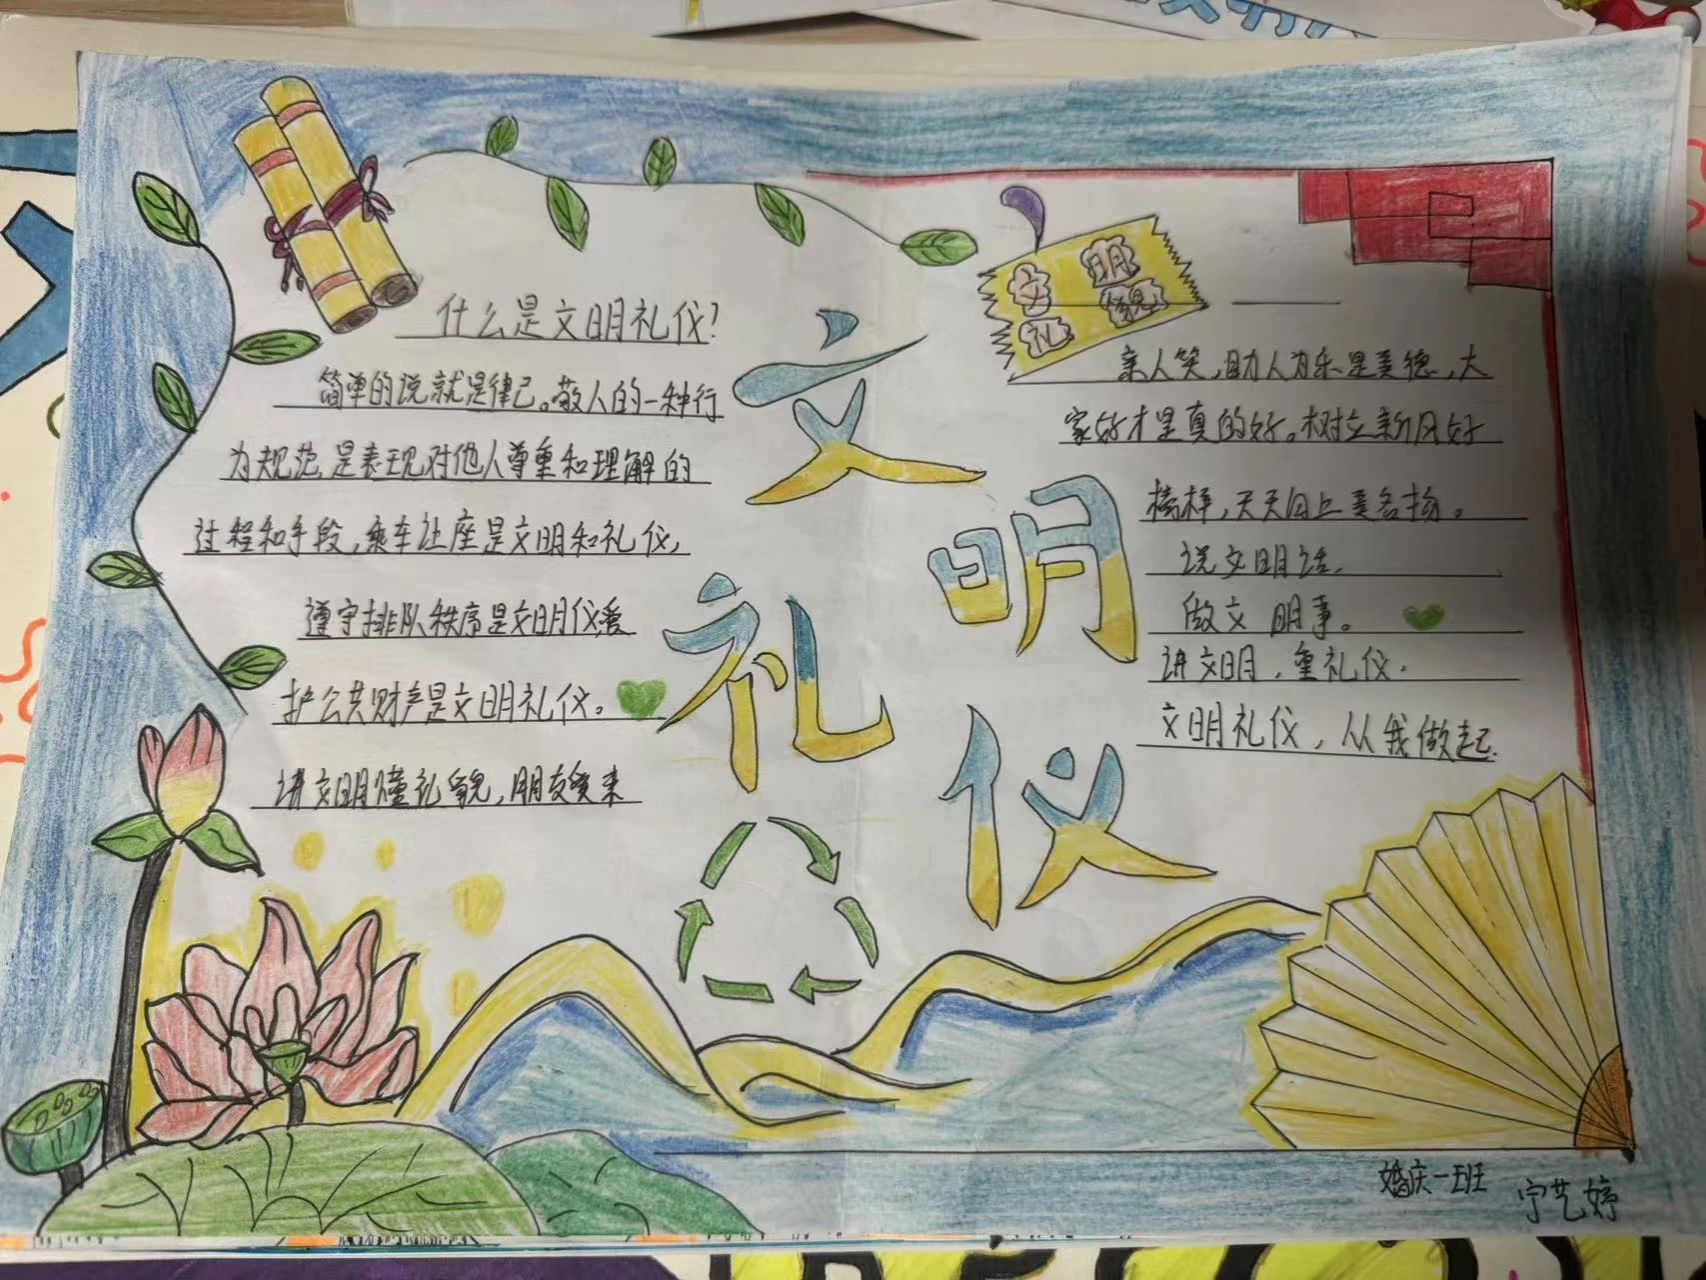 什么是文明礼仪?
简单的说就是律己。敬人的一种行
为规范,是表现对他人尊重和理解的
过程和手段,乘车让座是文明和礼仪,
遵守排队秩序是文明仪,爱
护公共财产是文明礼仪。
讲文明懂礼貌,朋友笑来
文明礼仪
文明
礼貌
亲人笑,助人为乐是美德,大
家好才是真的好。树立新风好
榜样,天天向上美名扬。
说文明话,
做文明事。
讲文明,重礼仪.
文明礼仪,从我做起.
婚庆一班
宁艺婷